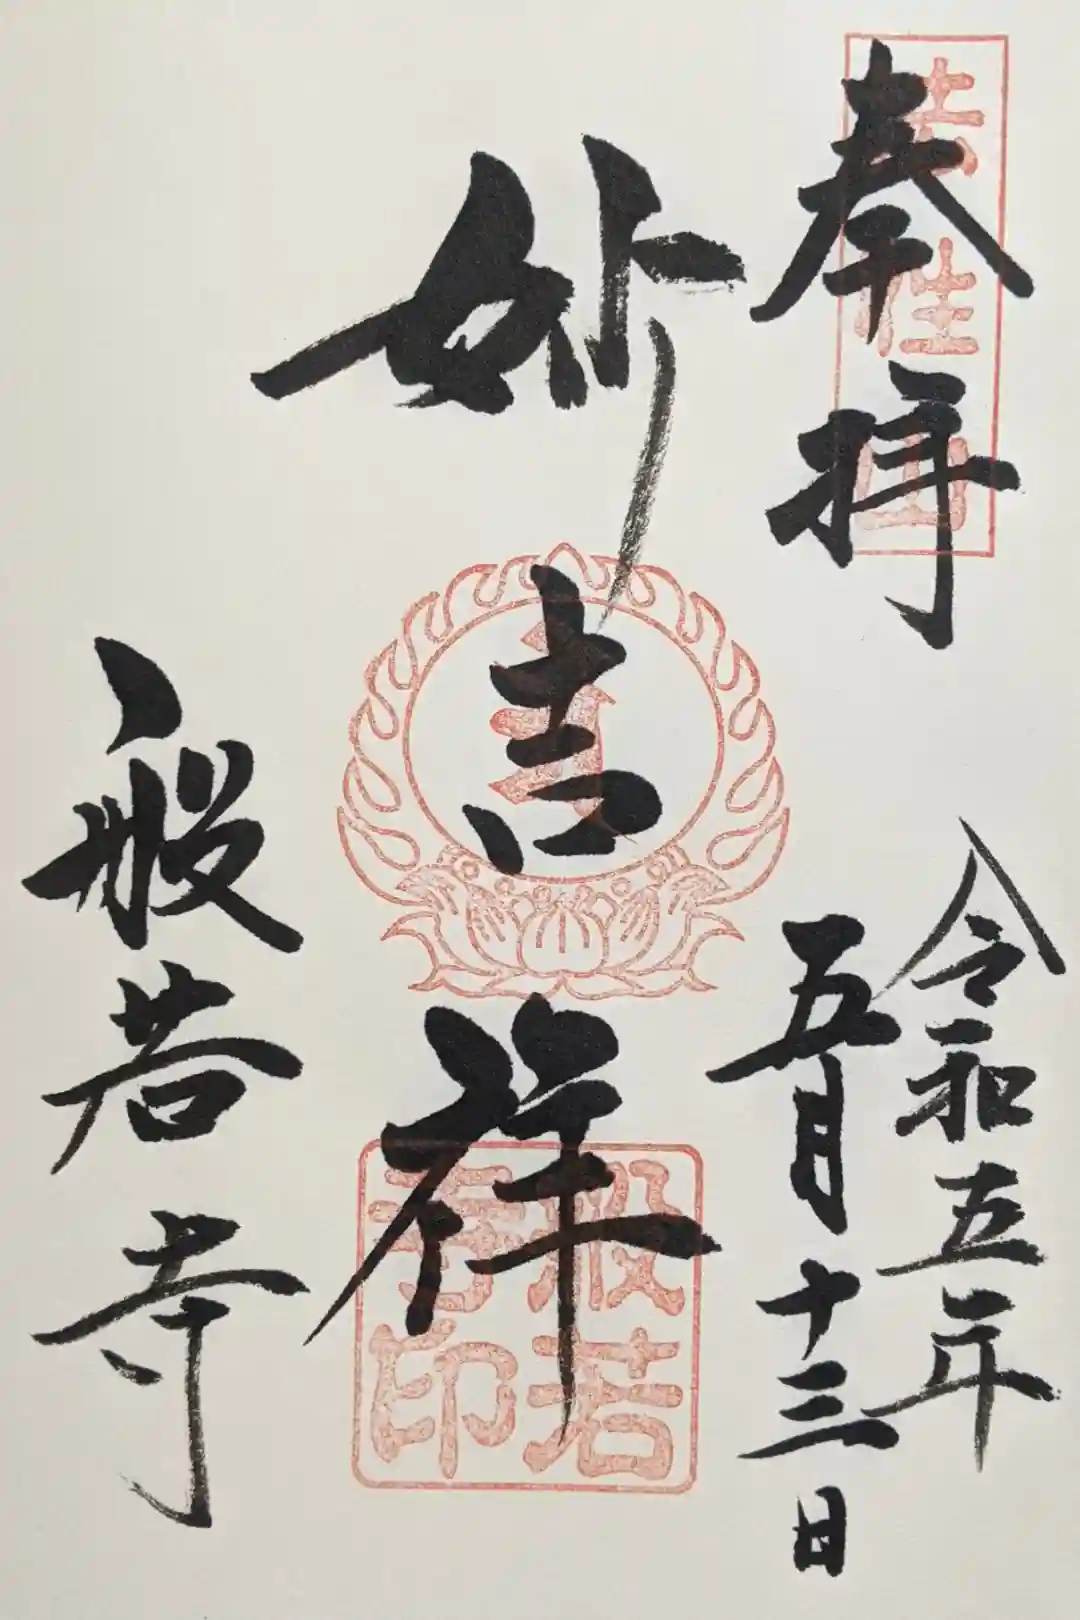 奉拝
法性山
令和五年
五月十三日
妙吉祥
般若寺印
般若寺